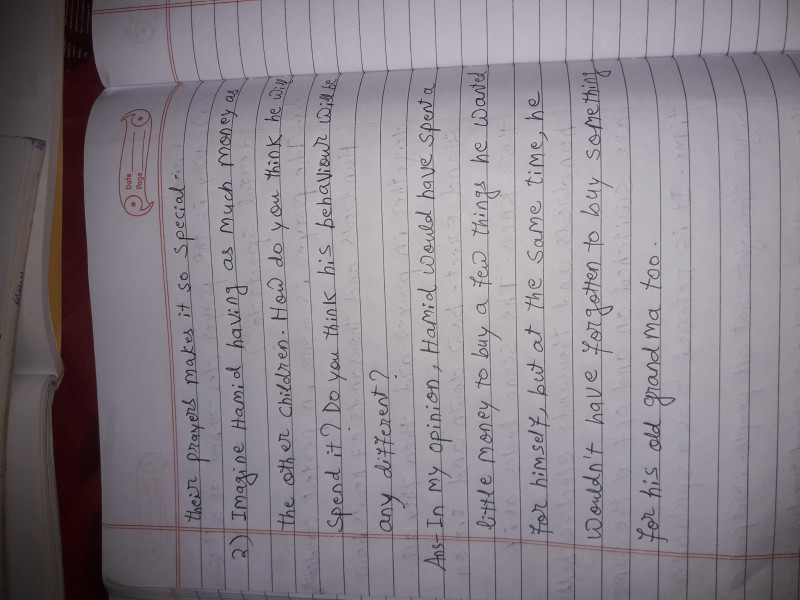 Date
Page
their prayers makes it so special.
2) Imagine Hamid having as much money as
the other children. How do you think he will
spend it? Do you think his behaviour will be
any different?
Ans- In my opinion, Hamid would have spent a
little money to buy a few things he wanted
for himself, but at the same time, he
wouldn't have forgotten to buy something
for his old grandma too.